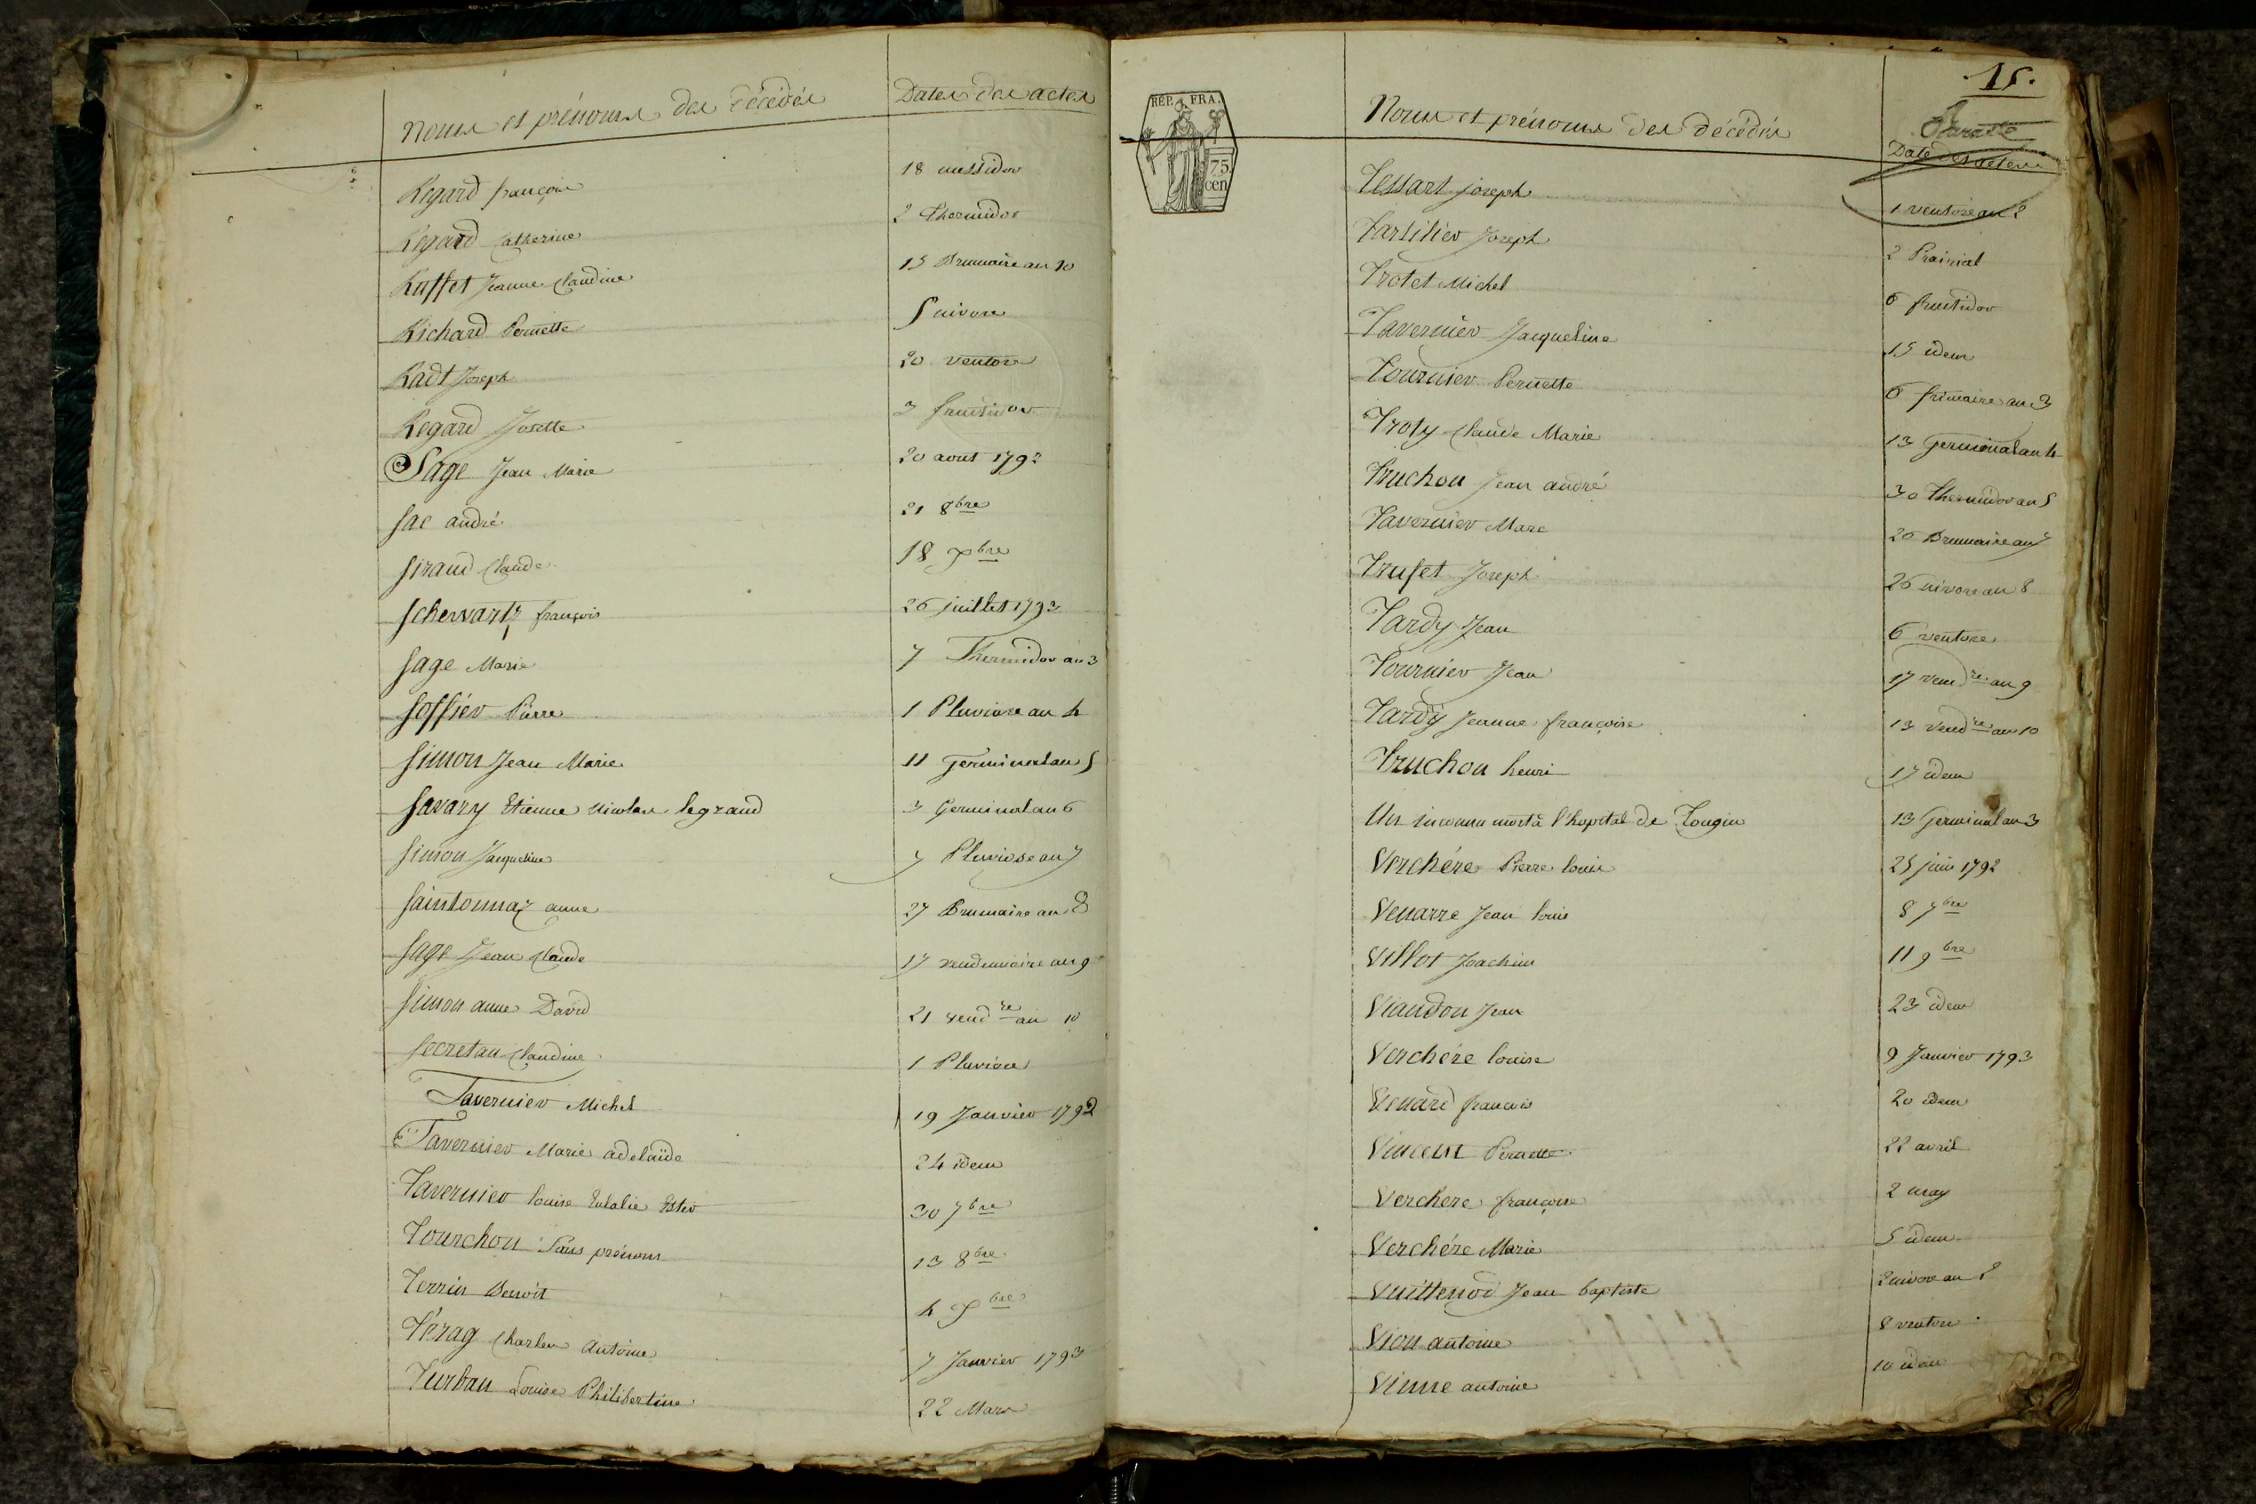 Noms et prénoms des décédés Dates des actes
Regard françois 18 messidor
Regard Catherine 2 Thermidor
Ruffet Jeanne Claudine 15 Brumaire an 10
Richard Pernette 5 nivose
Radt Joseph 20 ventose
Regard Josette 3 fructidor
Sage Jean Marie 20 aout 1792
Sac andré 21 8bre
Siraud Claude 18 xbre
Schewartz françois 26 juillet 1793
Sage Marie 7 Thermidor an 3
Soffiév Pierre 1 Pluviose an 4
Simon Jean Marie 11 Germinal an 5
Savary Etienne Nicolas legrand 3 Germinal an 6
Simon Jacqueline 7 Pluviose an 7
Saintonnaz anne 27 Brumaire an 8
Sage Jean Claude 17 vendemiaire an 9
Simon anne David 21 vendre an 10
Secretan Claudine 1 Pluviose
Tavernier Michel 19 Janvier 1792
Tavernier Marie adelaïde 24 idem
Tavernier louise Eulalie Ester 30 7bre
Tourchon Sans prénoms 13 8bre
Terrin Benoit 4 xbre
Térag Charles Antoine 7 Janvier 1793
Turban Louise Philibertine 22 Mars
15.
RÉP. FRA.
75 cen
Noms et prénoms des décédés Date des actes
Tessart joseph 1 ventose an 2
Tartilier Joseph 2 Prairial
Trotet Michel 6 fructidor
Tavernier Jacqueline 15 idem
Tournier Pernette 6 frimaire an 3
Troly Claude Marie 13 Germinal an 4
Truchon Jean andré 30 Thermidor an 5
Tavernier Marc 20 Brumaire an 7
Trufet Joseph 26 nivose an 8
Tardy Jean 6 ventose
Tournier Jean 17 vendre an 9
Tardy Jeanne françoise 13 vendre an 10
Truchon henri 17 idem
Un inconnu mort à l'hopital de Tougin 13 Germinal an 3
Verchére Pierre louis 25 juin 1792
Venarre Jean louis 8 7bre
Villot Joachim 11 9bre
Viandon Jean 23 idem
Verchére louise 9 Janvier 1793
Venard francois 20 idem
Vincent Pernette 22 avril
Verchere françoise 2 may
Verchére Marie 5 idem
Vuittenod Jean baptiste 2 nivose an 2
Vion antoine 8 ventose
Vinne antoine 10 idem